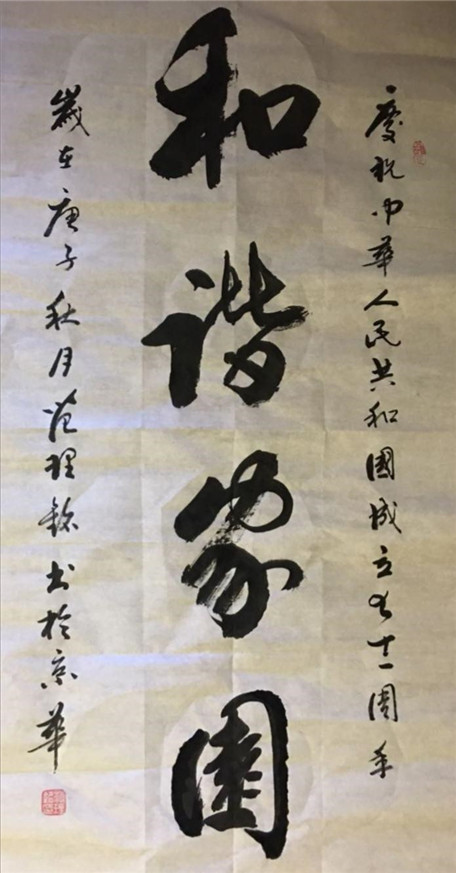 慶祝中華人民共和國成立七十一周年
和諧家園
歲在庚子秋月范理銘書於京華